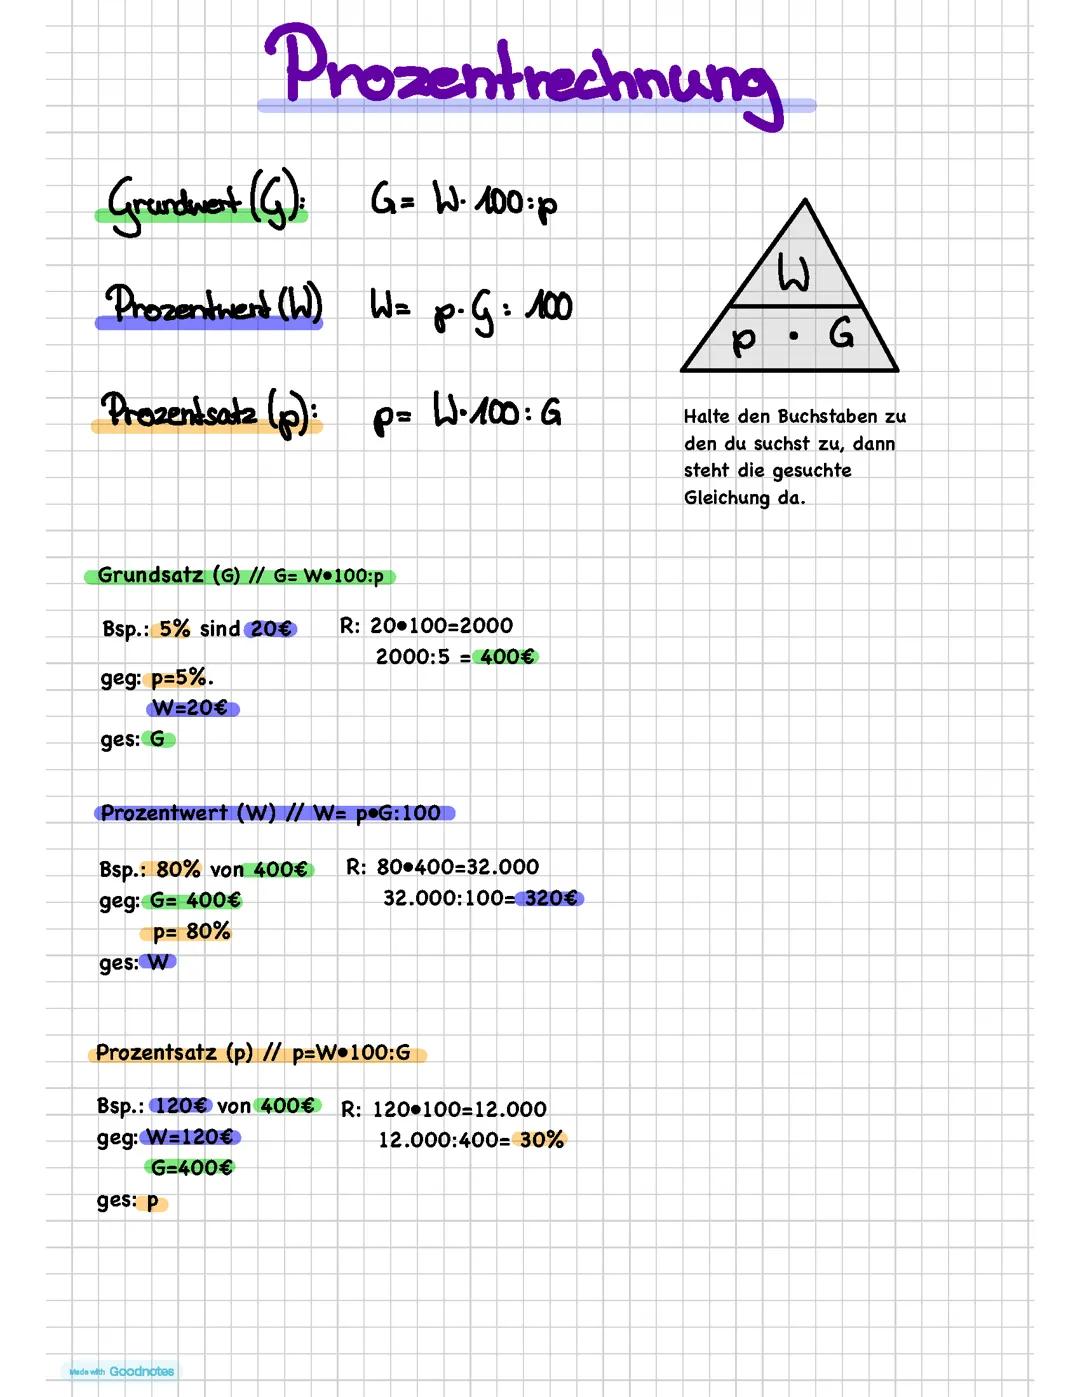 Prozentrechnung
Grundwert (G): G= W· 100:p
Prozentwert (W) W= p·G: 100
Prozentsatz (p): p= W·100: G
W
p · G
Halte den Buchstaben zu
den du suchst zu, dann
steht die gesuchte
Gleichung da.
Grundsatz (G) // G= W•100:p
Bsp.: 5% sind 20€ R: 20•100=2000
2000:5 = 400€
geg: p=5%.
W=20€
ges: G
Prozentwert (W) // W= p•G:100
Bsp.: 80% von 400€ R: 80•400=32.000
geg: G= 400€ 32.000:100= 320€
p= 80%
ges: W
Prozentsatz (p) // p=W•100:G
Bsp.: 120€ von 400€ R: 120•100=12.000
geg: W=120€ 12.000:400= 30%
G=400€
ges: p
Made with Goodnotes